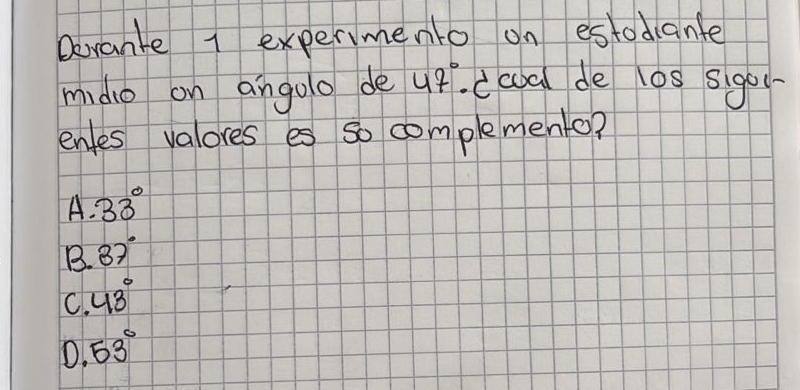 Durante 1 experimento un estudiante
midio un ángulo de 47°. ¿cual de los sigui-
entes valores es su complemento?
A. 33°
B. 37°
C. 43°
D. 53°